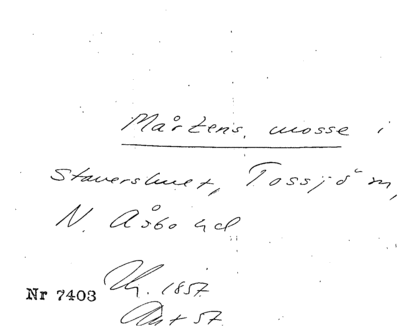 Mårtens mosse i
Stavershult, Tossjö m,
N. Åsbo hd
Nr 7403
1857
57.